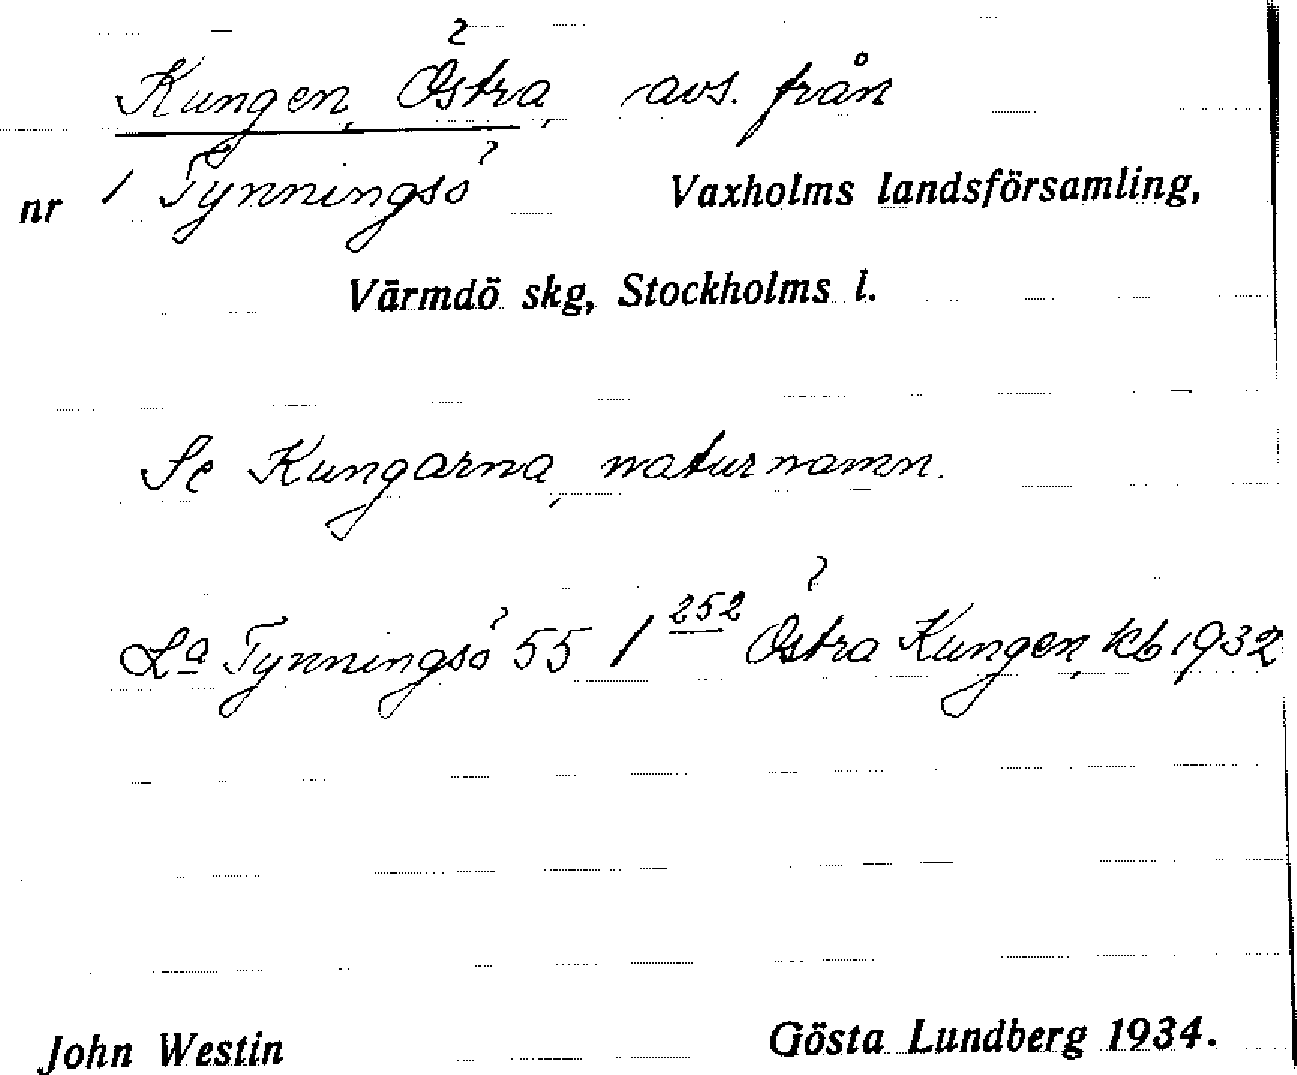 Kungen, Östra, avs. från
nr 1 Tynningsö Vaxholms landsförsamling,
Värmdö skg, Stockholms l.
Se Kungarna, naturnamn.
La Tynningsö 55 / 252 Östra Kungen, kb 1932
John Westin Gösta Lundberg 1934.